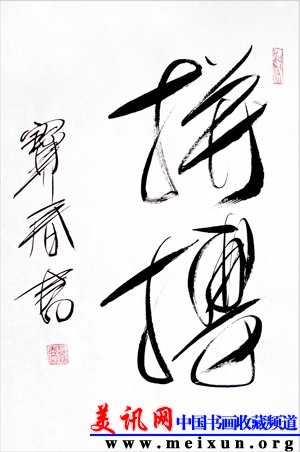 拼搏
寶春书
美讯网 中国书画收藏频道
www.meixun.org